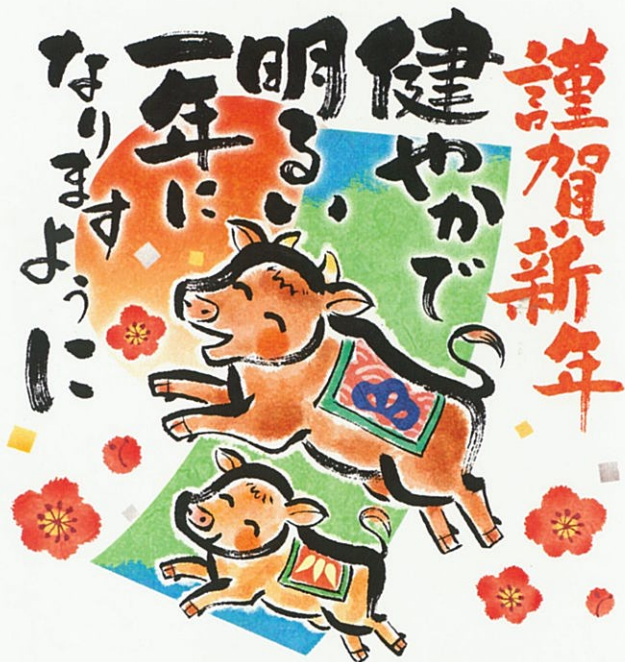 謹賀新年
健やかで
明るい
一年に
なります
ように